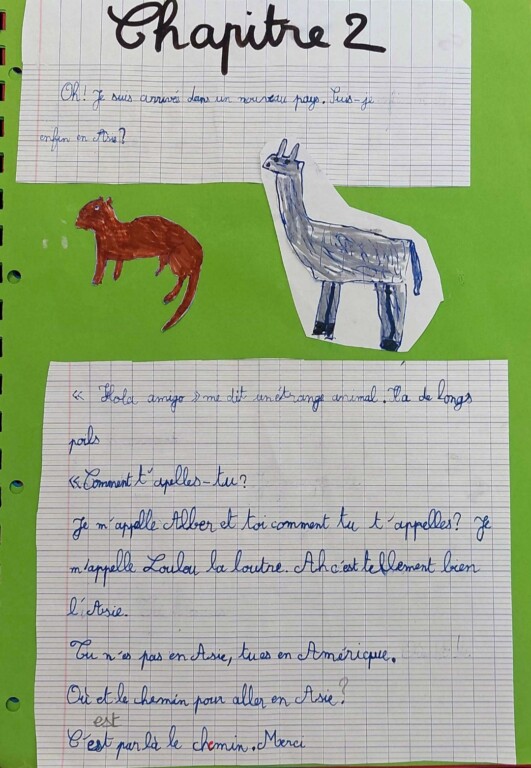 Chapitre 2
Oh! Je suis arrivé dans un nouveau pays. Suis-je
enfin en Asie?
« Hola amigo » me dit un étrange animal. Il a de longs
poils
« Comment t'apelles-tu?
Je m'appelle Alber et toi comment tu t'appelles? Je
m'appelle Loulou la loutre. Ah c'est tellement bien
l'Asie.
Tu n'es pas en Asie, tu es en Amérique.
Où et le chemin pour aller en Asie?
est
C'est par là le chemin. Merci